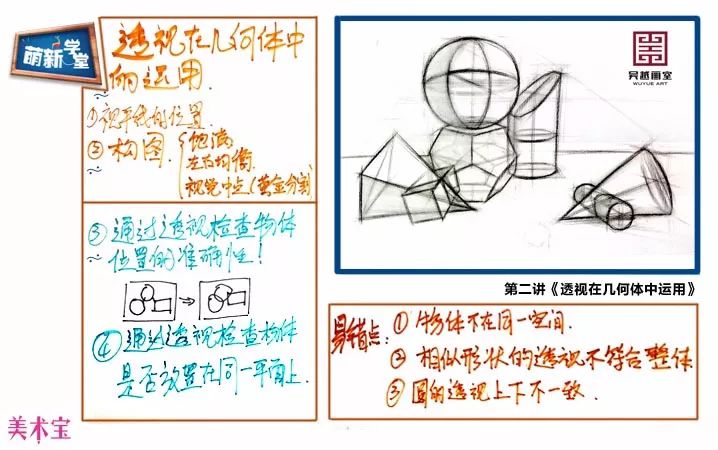 萌新学堂
透视在几何体中
的运用
①视平线的位置
②构图{饱满
左右均衡
视觉中点(黄金分割)
③通过透视检查物体
位置的准确性!
④通过透视检查物体
是否放置在同一平面上.
吴越画室
WUYUE ART
第二讲《透视在几何体中运用》
易错点:①物体不在同一空间.
②相似形状的透视不符合整体
③圆的透视上下不一致.
美术宝